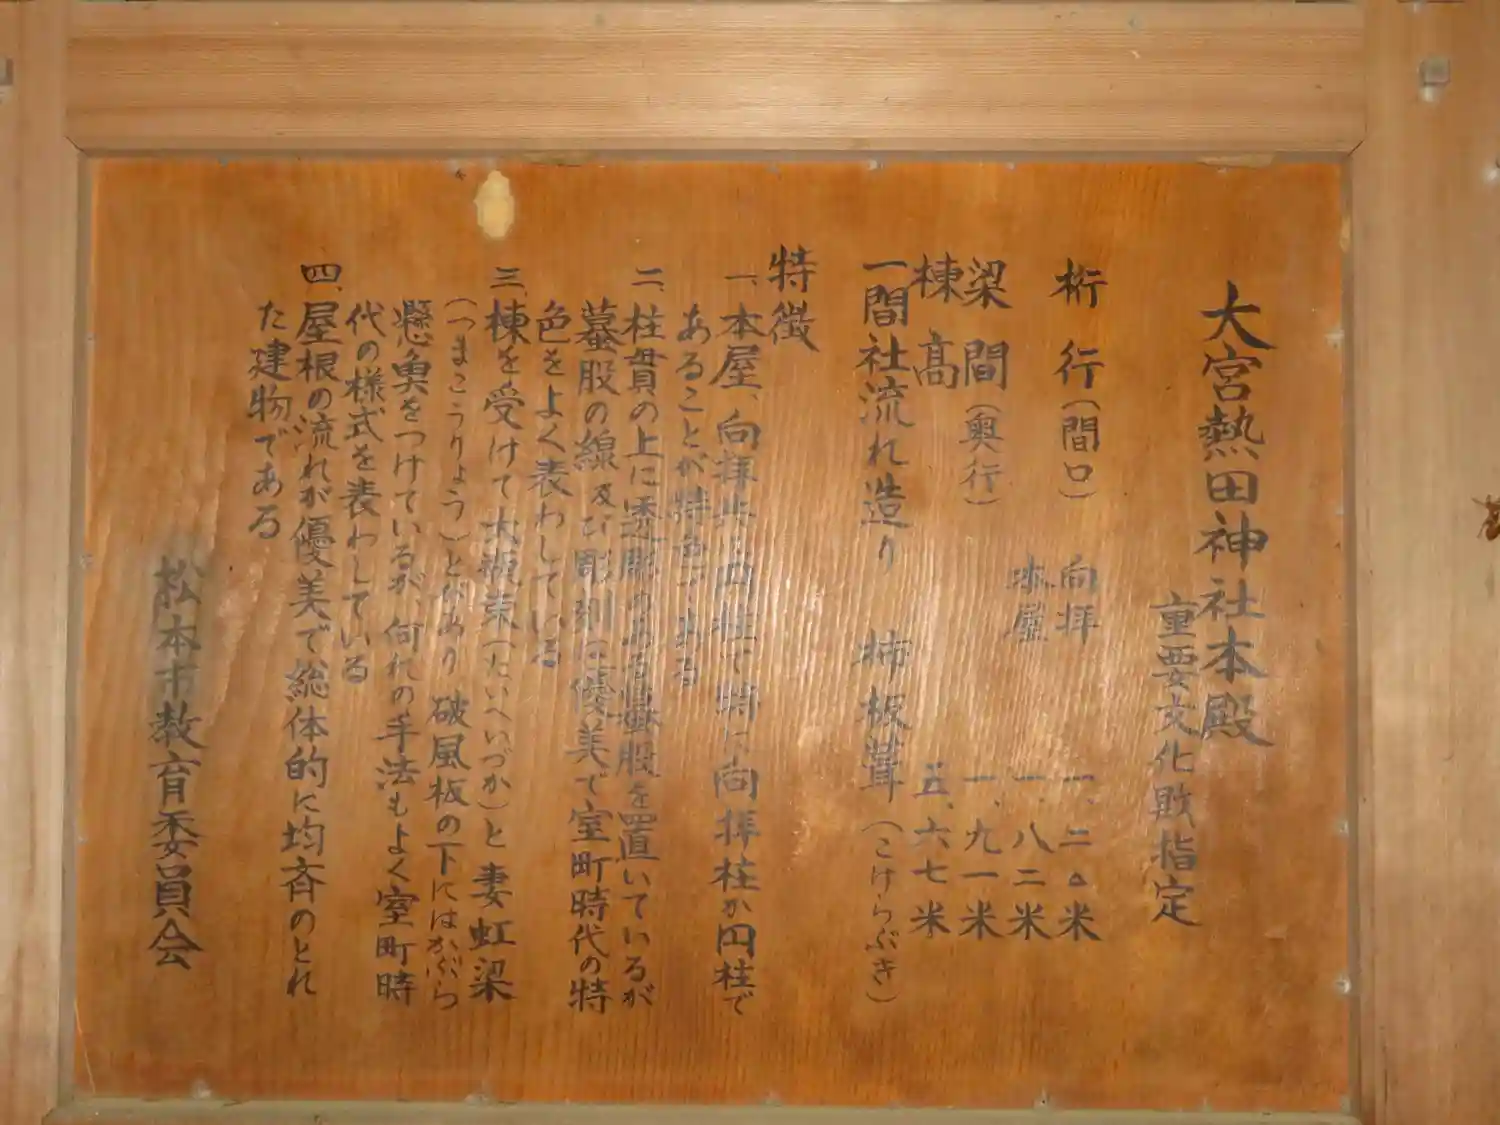 大宮熱田神社本殿
重要文化財指定
桁行(間口) 向拝 一、二〇米
本屋 一、八二米
梁間(奥行) 一、九一米
棟高 五、六七米
一間社流れ造り 柿板葺(こけらぶき)
特徴
一、本屋、向拝共に円柱で特に向拝柱が円柱で
あることが特色である
二、柱貫の上に透彫のある蟇股を置いているが
蟇股の線及び彫刻は優美で室町時代の特
色をよく表わしている
三、棟を受けて大瓶束(たいへいづか)と妻虹梁
(つまこうりょう)とがあり 破風板の下にはかぶら
懸魚をつけているが、何れの手法もよく室町時
代の様式を表わしている
四、屋根の流れが優美で総体的に均斉のとれ
た建物である
松本市教育委員会